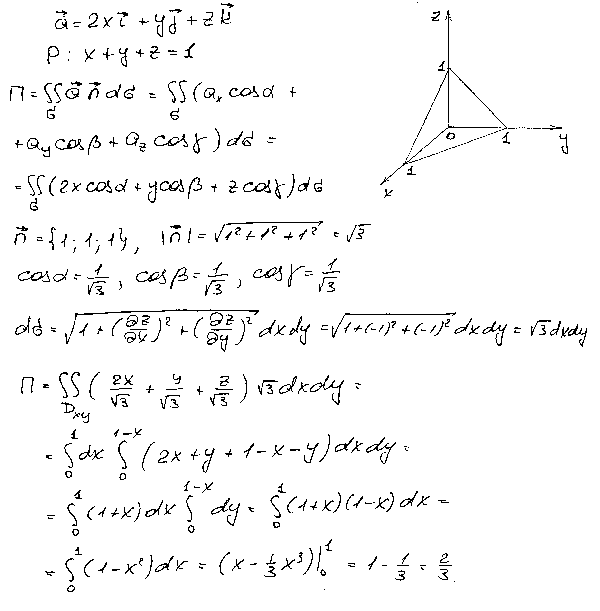 a⃗ = 2x i⃗ + y j⃗ + z k⃗
P: x + y + z = 1
П = ∬_σ a⃗ n⃗ dσ = ∬_σ (a_x cosα +
+ a_y cosβ + a_z cosγ) dσ =
= ∬_σ (2x cosα + y cosβ + z cosγ) dσ
n⃗ = {1; 1; 1}, |n⃗| = √(1² + 1² + 1²) = √3
cosα = 1/√3, cosβ = 1/√3, cosγ = 1/√3
dσ = √(1 + (∂z/∂x)² + (∂z/∂y)²) dxdy = √(1 + (-1)² + (-1)²) dxdy = √3 dxdy
П = ∬_{D_xy} (2x/√3 + y/√3 + z/√3) √3 dxdy =
= ∫_0^1 dx ∫_0^{1-x} (2x + y + 1 - x - y) dxdy =
= ∫_0^1 (1+x) dx ∫_0^{1-x} dy = ∫_0^1 (1+x)(1-x) dx =
= ∫_0^1 (1 - x²) dx = (x - 1/3 x³)|_0^1 = 1 - 1/3 = 2/3
z
1
0
1
y
1
x